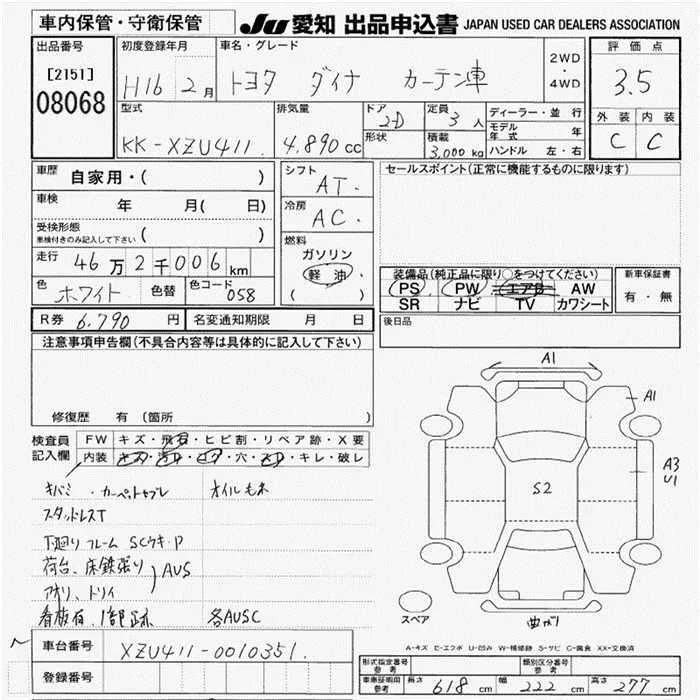 車内保管・守衛保管
JU 愛知 出品申込書 JAPAN USED CAR DEALERS ASSOCIATION
出品番号
[2151]
08068
初度登録年月
H16 2月
車名・グレード
トヨタ ダイナ カーテン車
2WD
・
4WD
評価点
3.5
外装 内装
C C
型式
KK-XZU411
排気量
4.890cc
ドア
2D
形状
定員
3人
積載
3,000kg
ディーラー・並行
モデル年式 年
ハンドル 左・右
車歴
自家用・( )
車検
年 月( 日)
受検形態
車検付きのみ記入して下さい ( )
走行
46万2千006km
色
ホワイト
色替
色コード
058
シフト
AT.
冷房
AC.
燃料
ガソリン
軽油
( )
セールスポイント(正常に機能するものに限ります)
装備品(純正品に限り○をつけてください)
PS PW エアB AW
SR ナビ TV カワシート
新車保証書
有・無
後日品
R券 6.790円
名変通知期限 月 日
注意事項申告欄(不具合内容等は具体的に記入して下さい)
修復歴 有(箇所 )
検査員記入欄
FW キズ・飛石・ヒビ割・リペア跡・X要
内装 キズ・汚レ・コゲ・穴・スレ・キレ・破レ
キバミ・カーペットヤブレ オイルモレ
スタッドレスT
下廻りフレーム SCウキ・P
荷台、床鉄張り
アオリ、トリイ
AUS
看板有、1部跡 各AUSC
A1
A1
A3
U1
S2
曲がり
スペア
A-キズ E-エクボ U-凹み W-補修跡 S-サビ C-腐食 XX-交換済
車台番号
XZU411-0010351.
登録番号
形式指定番号
参考
類別区分番号
参考
車庫証明用
参考
長さ 618cm 幅 222cm 高さ 277cm